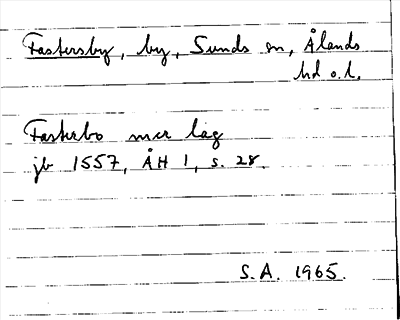 Fastersby, by, Sunds sn, Ålands
hd o. l.
Fasterbo mcr lag
jb 1557, ÅH 1, s. 28.
S.A. 1965.